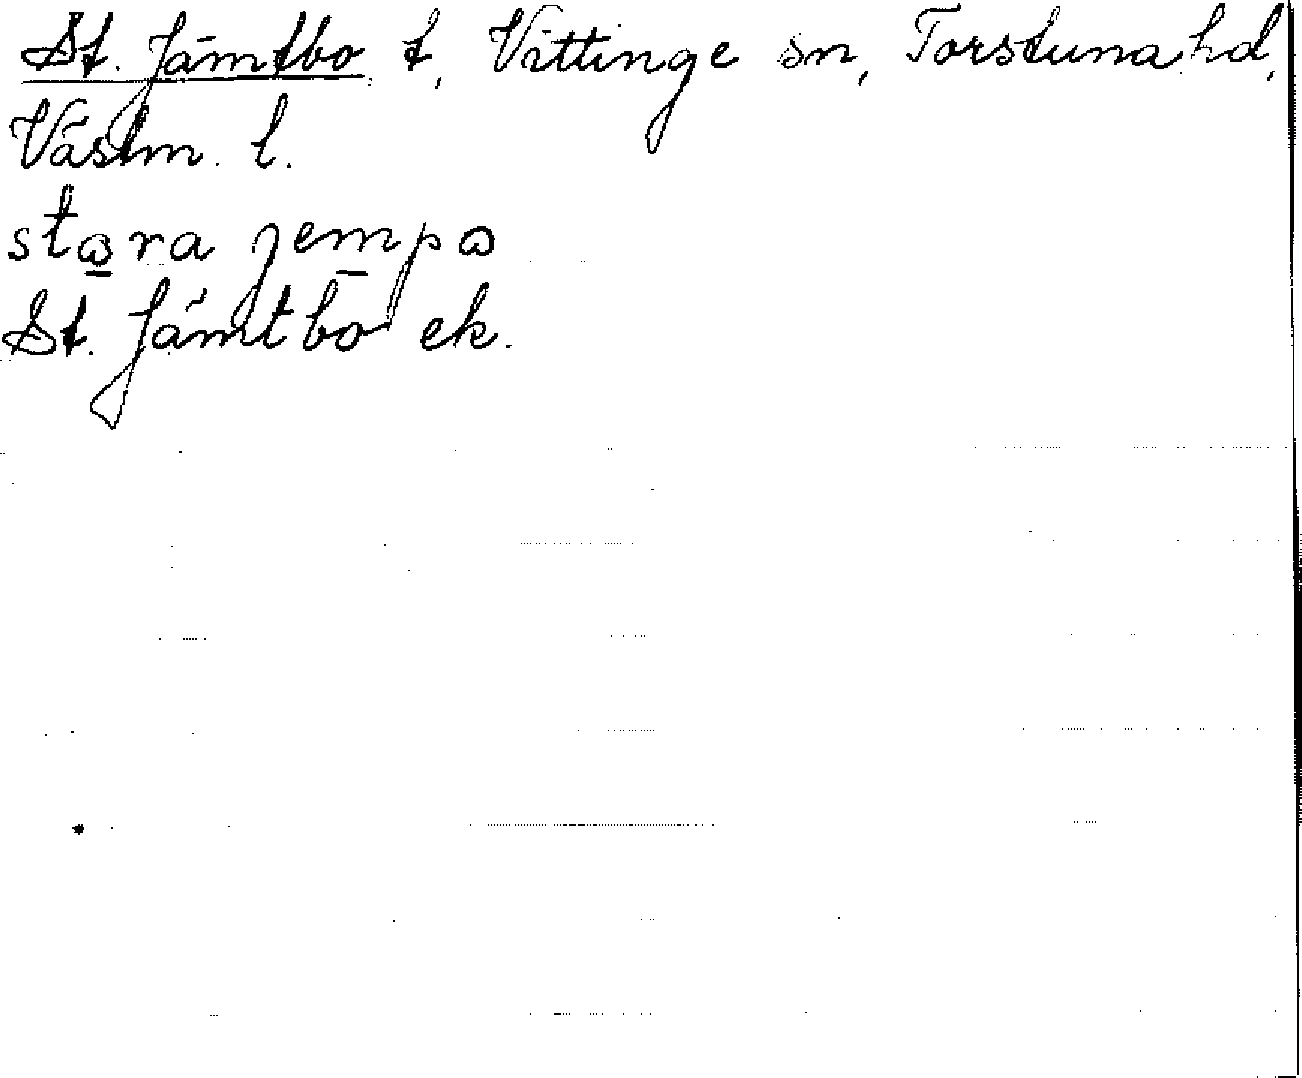 St. Jämtbo t, Vittinge sn, Torstuna hd,
Västm. l.
stɷ̲ra jem̲pɷ
St. Jämtbo ek.